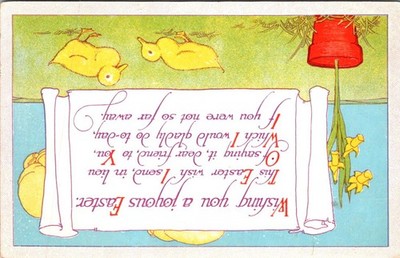 Wishing you a joyous Easter.
This Easter wish I send, in lieu
Of saying it, dear friend, to You,
Which I would gladly do to-day,
If you were not so far away.